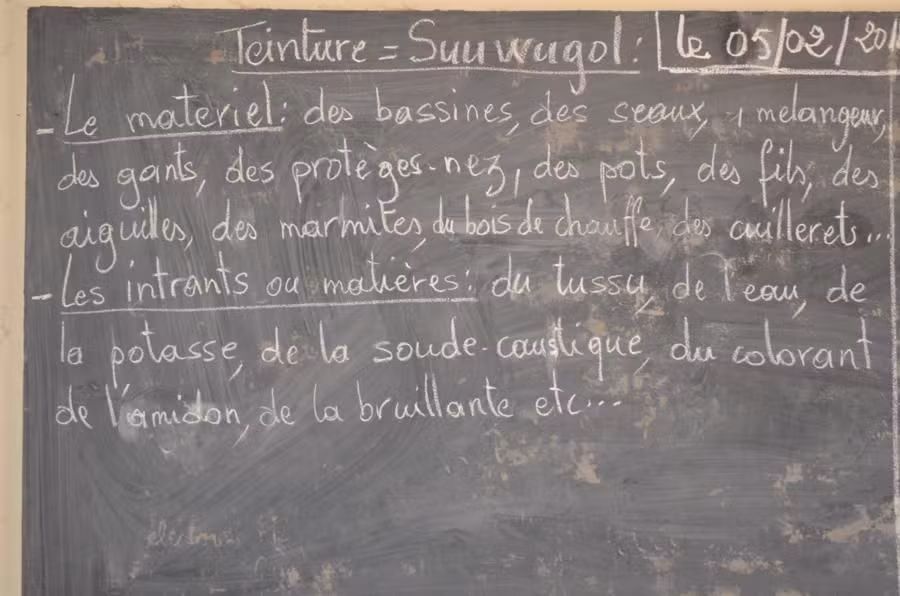 Teinture = Suuwugol : le 05/02/201
- Le materiel : des bassines, des seaux, 1 melangeur,
des gants, des protèges-nez, des pots, des fils, des
aiguilles, des marmites, du bois de chauffe, des cuillerets...
- Les intrants ou matières : du tussu, de l'eau, de
la potasse, de la soude-caustique, du colorant
de l'amidon, de la bruillante etc...